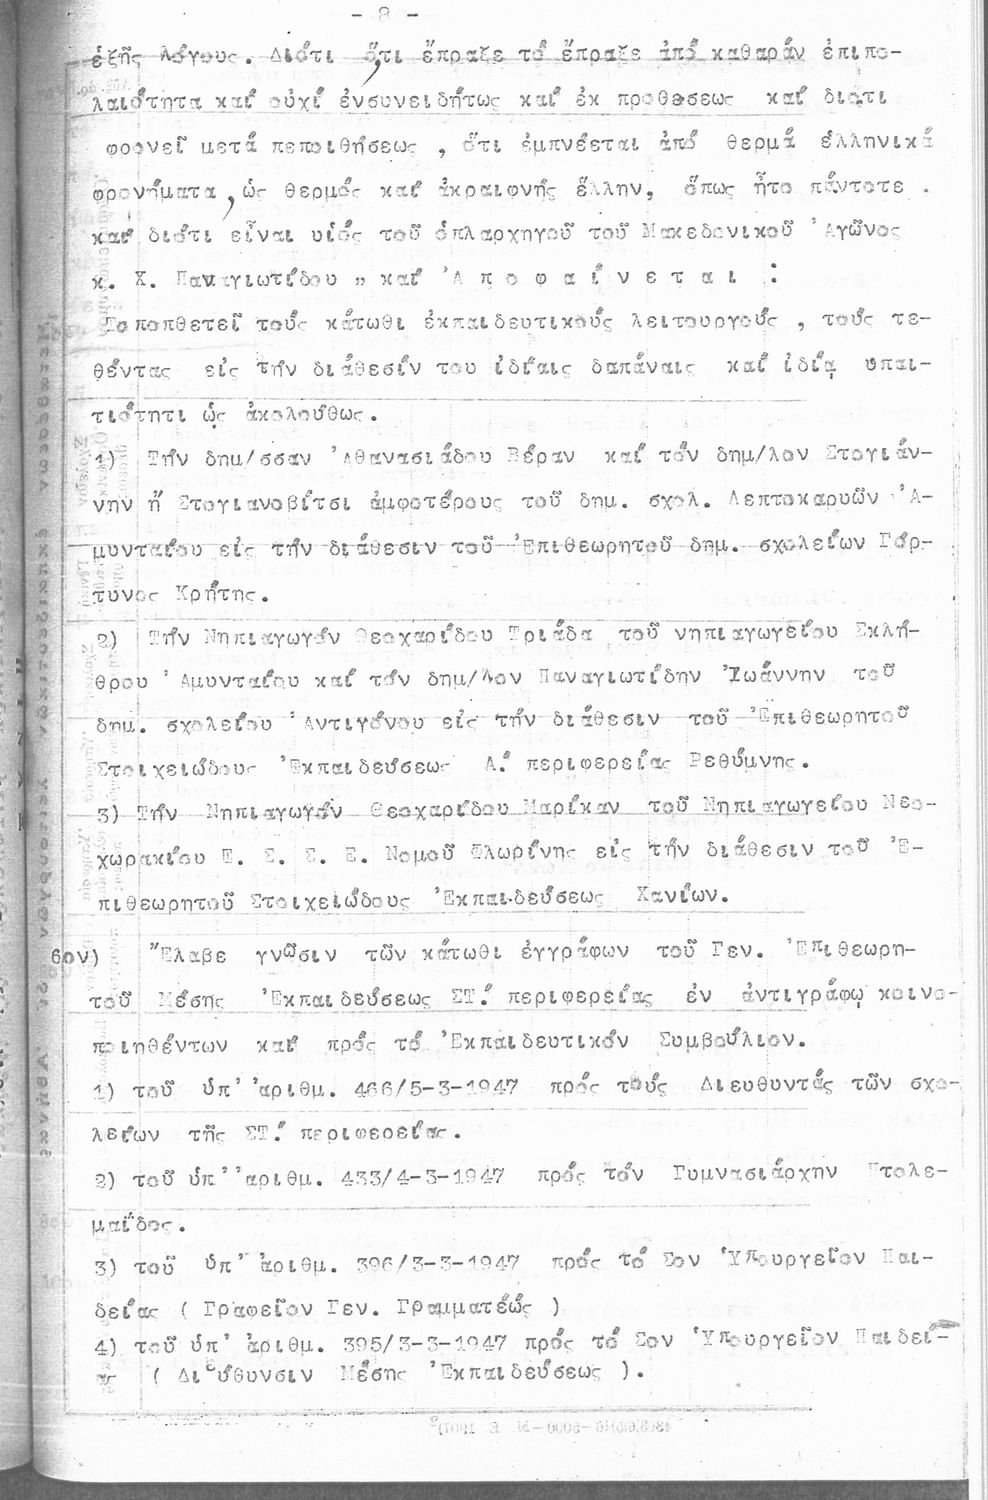 - 8 -
ἑξῆς λόγους. Διότι ὅ,τι ἔπραξε τό ἔπραξε ἀπό καθαράν ἐπιπο-
λαιότητα καί οὐχί ἐνσυνειδήτως καί ἐκ προθέσεως καί διότι
φρονεῖ μετά πεποιθήσεως , ὅτι ἐμπνέεται ἀπό θερμά ἑλληνικά
φρονήματα, ὡς θερμός καί ἀκραιφνής ἕλλην, ὅπως ἦτο πάντοτε .
καί διότι εἶναι υἱός τοῦ ὁπλαρχηγοῦ τοῦ Μακεδονικοῦ Ἀγῶνος
κ. Χ. Παναγιωτίδου „ καί Ἀ π ο φ α ί ν ε τ α ι :
Τοποπθετεῖ τούς κάτωθι ἐκπαιδευτικούς λειτουργούς , τούς τε-
θέντας εἰς τήν διάθεσίν του ἰδίαις δαπάναις καί ἰδίᾳ ὑπαι-
τιότητι ὡς ἀκολούθως.
1) Τήν δημ/σσαν Ἀθανασιάδου Βέραν καί τόν δημ/λον Στογιάν-
νην ἤ Στογιανοβίτσι ἀμφοτέρους τοῦ δημ. σχολ. Λεπτοκαρυῶν Ἀ-
μυνταίου εἰς τήν διάθεσιν τοῦ Ἐπιθεωρητοῦ δημ. σχολείων Γόρ-
τυνος Κρήτης.
2) Τήν Νηπιαγωγόν Θεοχαρίδου Τριάδα τοῦ νηπιαγωγείου Σκλή-
θρου Ἀμυνταίου καί τόν δημ/λον Παναγιωτίδην Ἰωάννην τοῦ
δημ. σχολείου Ἀντιγόνου εἰς τήν διάθεσιν τοῦ Ἐπιθεωρητοῦ
Στοιχειώδους Ἐκπαιδεύσεως Α.΄ περιφερείας Ρεθύμνης.
3) Τήν Νηπιαγωγόν Θεοχαρίδου Μαρίκαν τοῦ Νηπιαγωγείου Νεο-
χωρακίου Ε. Σ. Σ. Ε. Νομοῦ Φλωρίνης εἰς τήν διάθεσιν τοῦ Ἐ-
πιθεωρητοῦ Στοιχειώδους Ἐκπαιδεύσεως Χανίων.
6ον) Ἔλαβε γνῶσιν τῶν κάτωθι ἐγγράφων τοῦ Γεν. Ἐπιθεωρη-
τοῦ Μέσης Ἐκπαιδεύσεως ΣΤ.΄ περιφερείας ἐν ἀντιγράφῳ κοινο-
ποιηθέντων καί πρός τό Ἐκπαιδευτικόν Συμβούλιον.
1) τοῦ ὑπ' ἀριθμ. 466/5-3-1947 πρός τούς Διευθυντάς τῶν σχο-
λείων τῆς ΣΤ.΄ περιφερείας.
2) τοῦ ὑπ' ἀριθμ. 433/4-3-1947 πρός τόν Γυμνασιάρχην Πτολε-
μαΐδος.
3) τοῦ ὑπ' ἀριθμ. 396/3-3-1947 πρός τό Σον Ὑπουργεῖον Παι-
δείας ( Γραφεῖον Γεν. Γραμματέως )
4) τοῦ ὑπ' ἀριθμ. 395/3-3-1947 πρός τό Σον Ὑπουργεῖον Παιδεί-
ας ( Διεύθυνσιν Μέσης Ἐκπαιδεύσεως ).